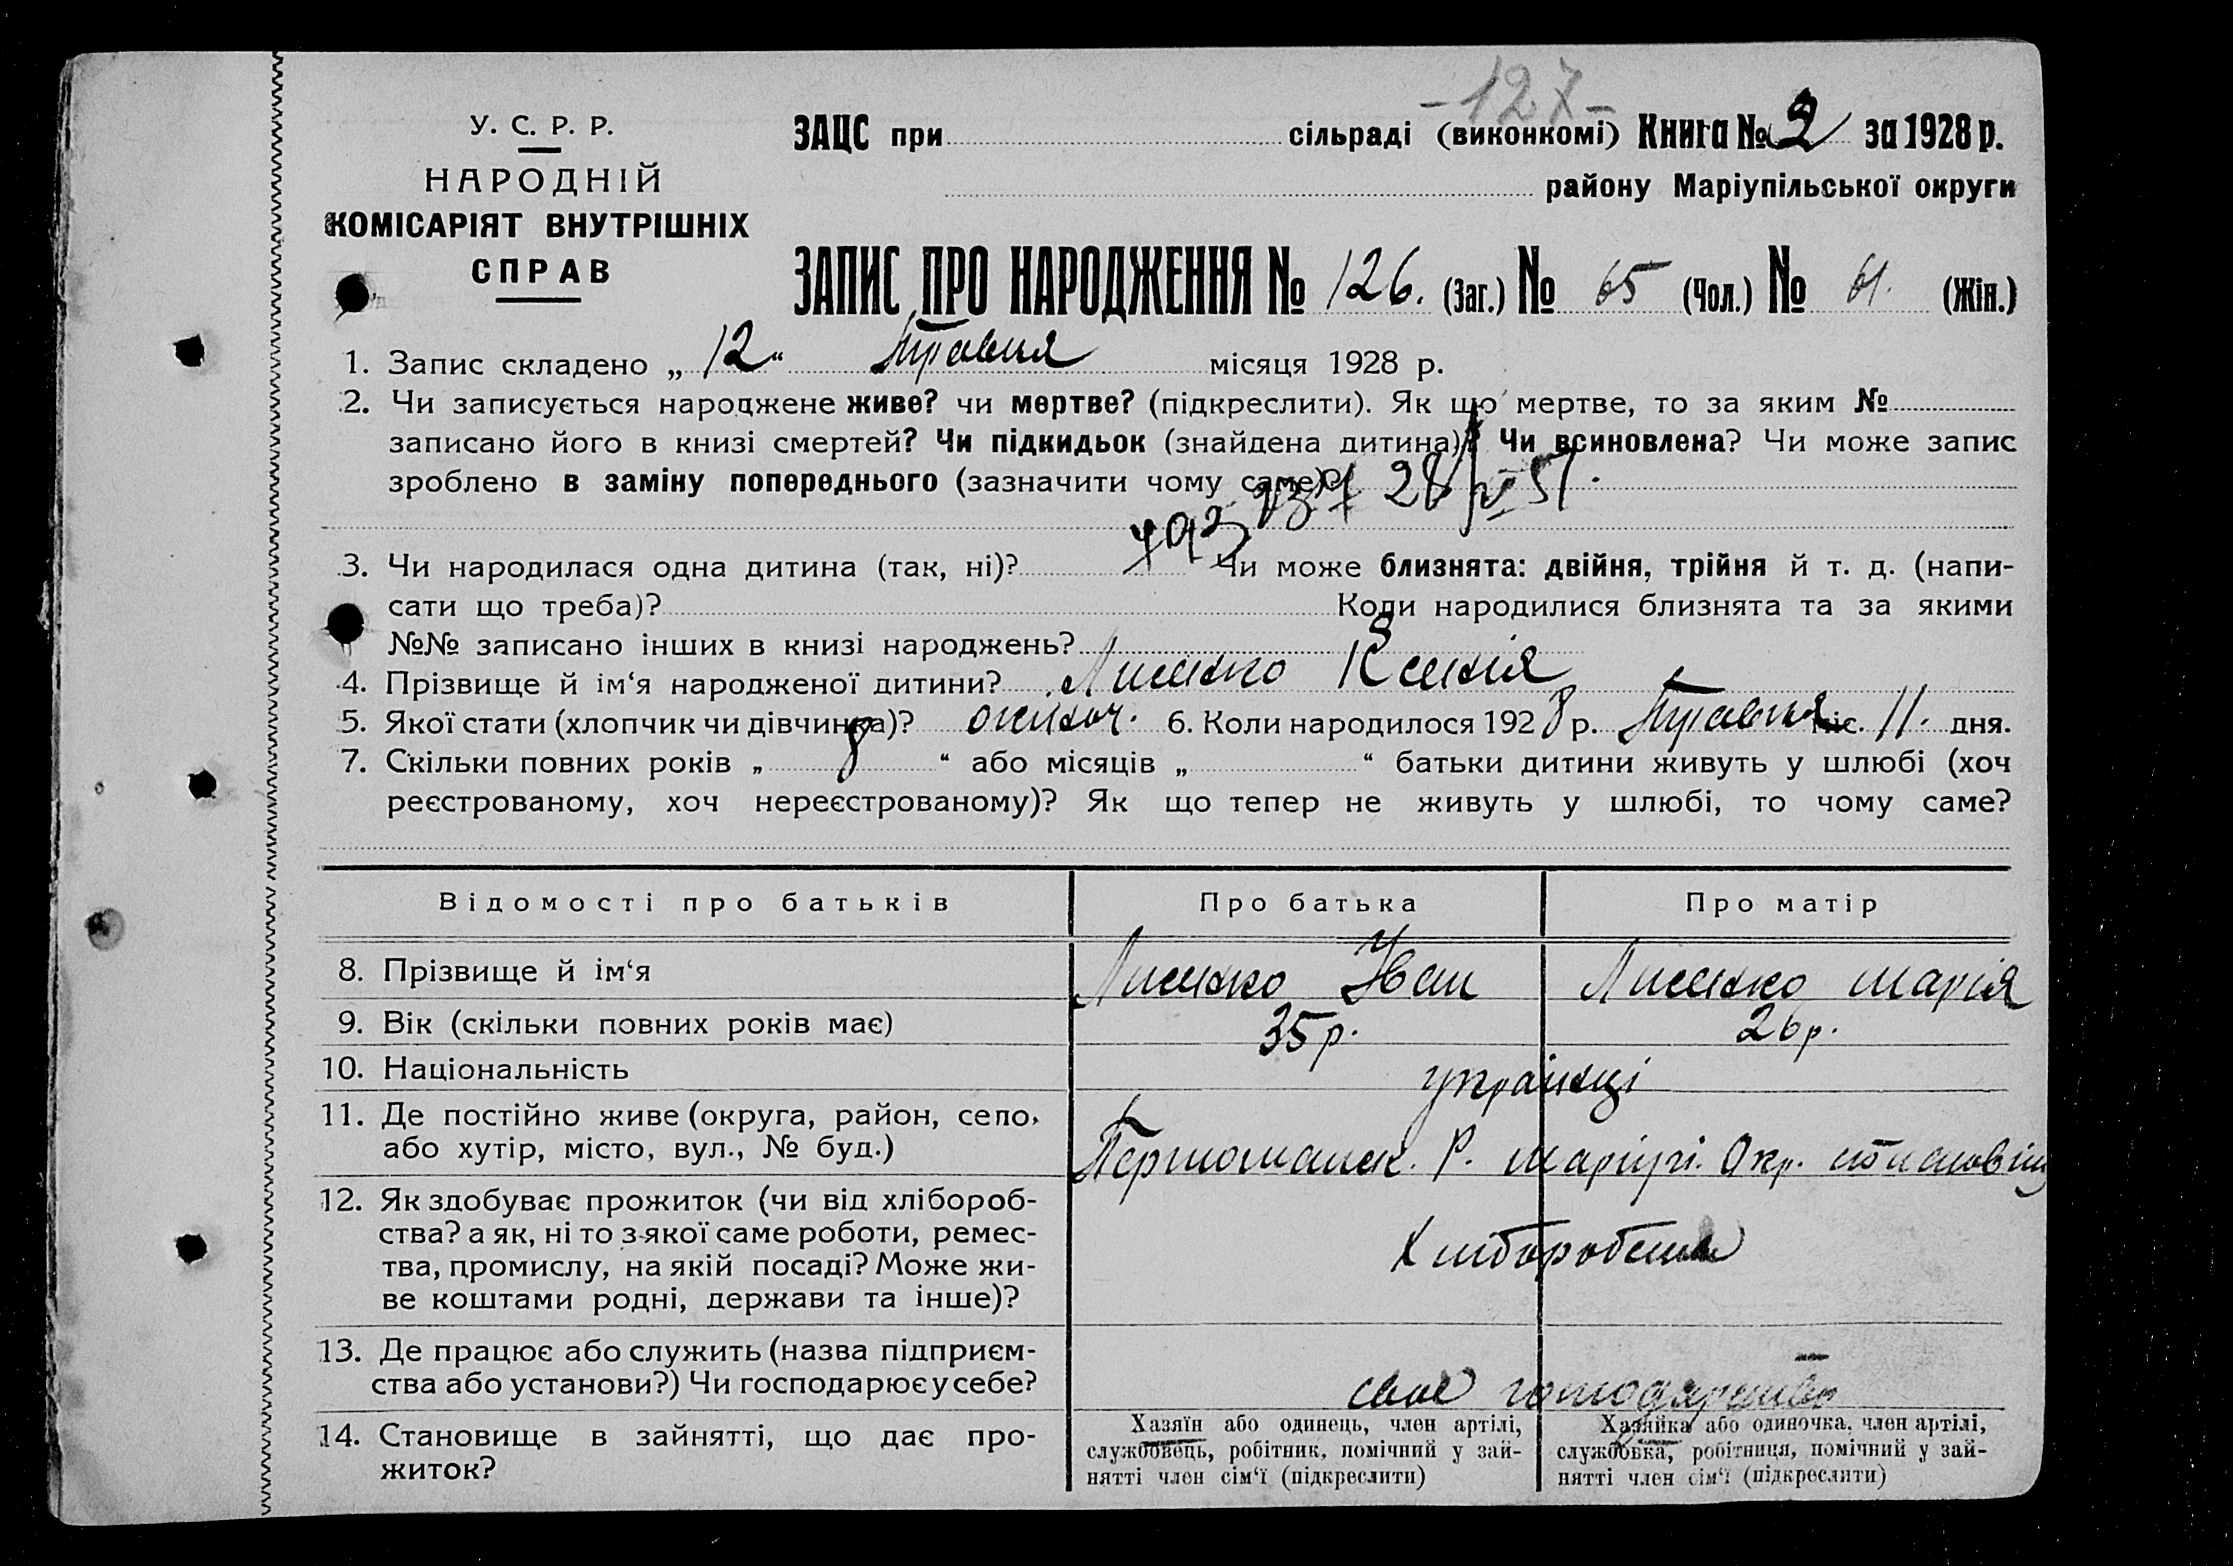 -127-
У. С. Р. Р.
НАРОДНІЙ
КОМІСАРІЯТ ВНУТРІШНІХ
СПРАВ
ЗАЦС при сільраді (виконкомі) Книга № 2 за 1928 р.
району Маріупільської округи
ЗАПИС ПРО НАРОДЖЕННЯ № 126. (Заг.) № 65 (Чол.) № 61. (Жін.)
1. Запис складено „ 12 “ Травня місяця 1928 р.
2. Чи записується народжене живе? чи мертве? (підкреслити). Як що мертве, то за яким №
записано його в книзі смертей? Чи підкидьок (знайдена дитина)? Чи всиновлена? Чи може запис
зроблено в заміну попереднього (зазначити чому саме)?
28/VI 51.
3. Чи народилася одна дитина (так, ні)? Чи може близнята: двійня, трійня й т. д. (напи-
сати що треба)? Коли народилися близнята та за якими
№№ записано інших в книзі народжень?
4. Прізвище й ім‘я народженої дитини? Лисенко Ксенія
5. Якої стати (хлопчик чи дівчинка)? 6. Коли народилося 1928 р. Травня міс. 11. дня.
7. Скільки повних років „ 8 “ або місяців „ “ батьки дитини живуть у шлюбі (хоч
реєстрованому, хоч нереєстрованому)? Як що тепер не живуть у шлюбі, то чому саме?
Відомості про батьків Про батька Про матір
8. Прізвище й ім‘я Лисенко Іван Лисенко Марія
9. Вік (скільки повних років має) 35 р. 26 р.
10. Національність українці
11. Де постійно живе (округа, район, село,
або хутір, місто, вул., № буд.) Р. Маріуп. Окр.
12. Як здобуває прожиток (чи від хлібороб-
ства? а як, ні то з якої саме роботи, ремес-
тва, промислу, на якій посаді? Може жи-
ве коштами родні, держави та інше)?
Хліборобство
13. Де працює або служить (назва підприєм-
ства або установи?) Чи господарює у себе?
своє господарство
14. Становище в зайнятті, що дає про-
житок?
Хазяїн або одинець, член артілі,
службовець, робітник, помічний у зай-
нятті член сім‘ї (підкреслити)
Хазяйка або одиночка, член артілі,
службовка, робітниця, помічний у зай-
нятті член сім‘ї (підкреслити)